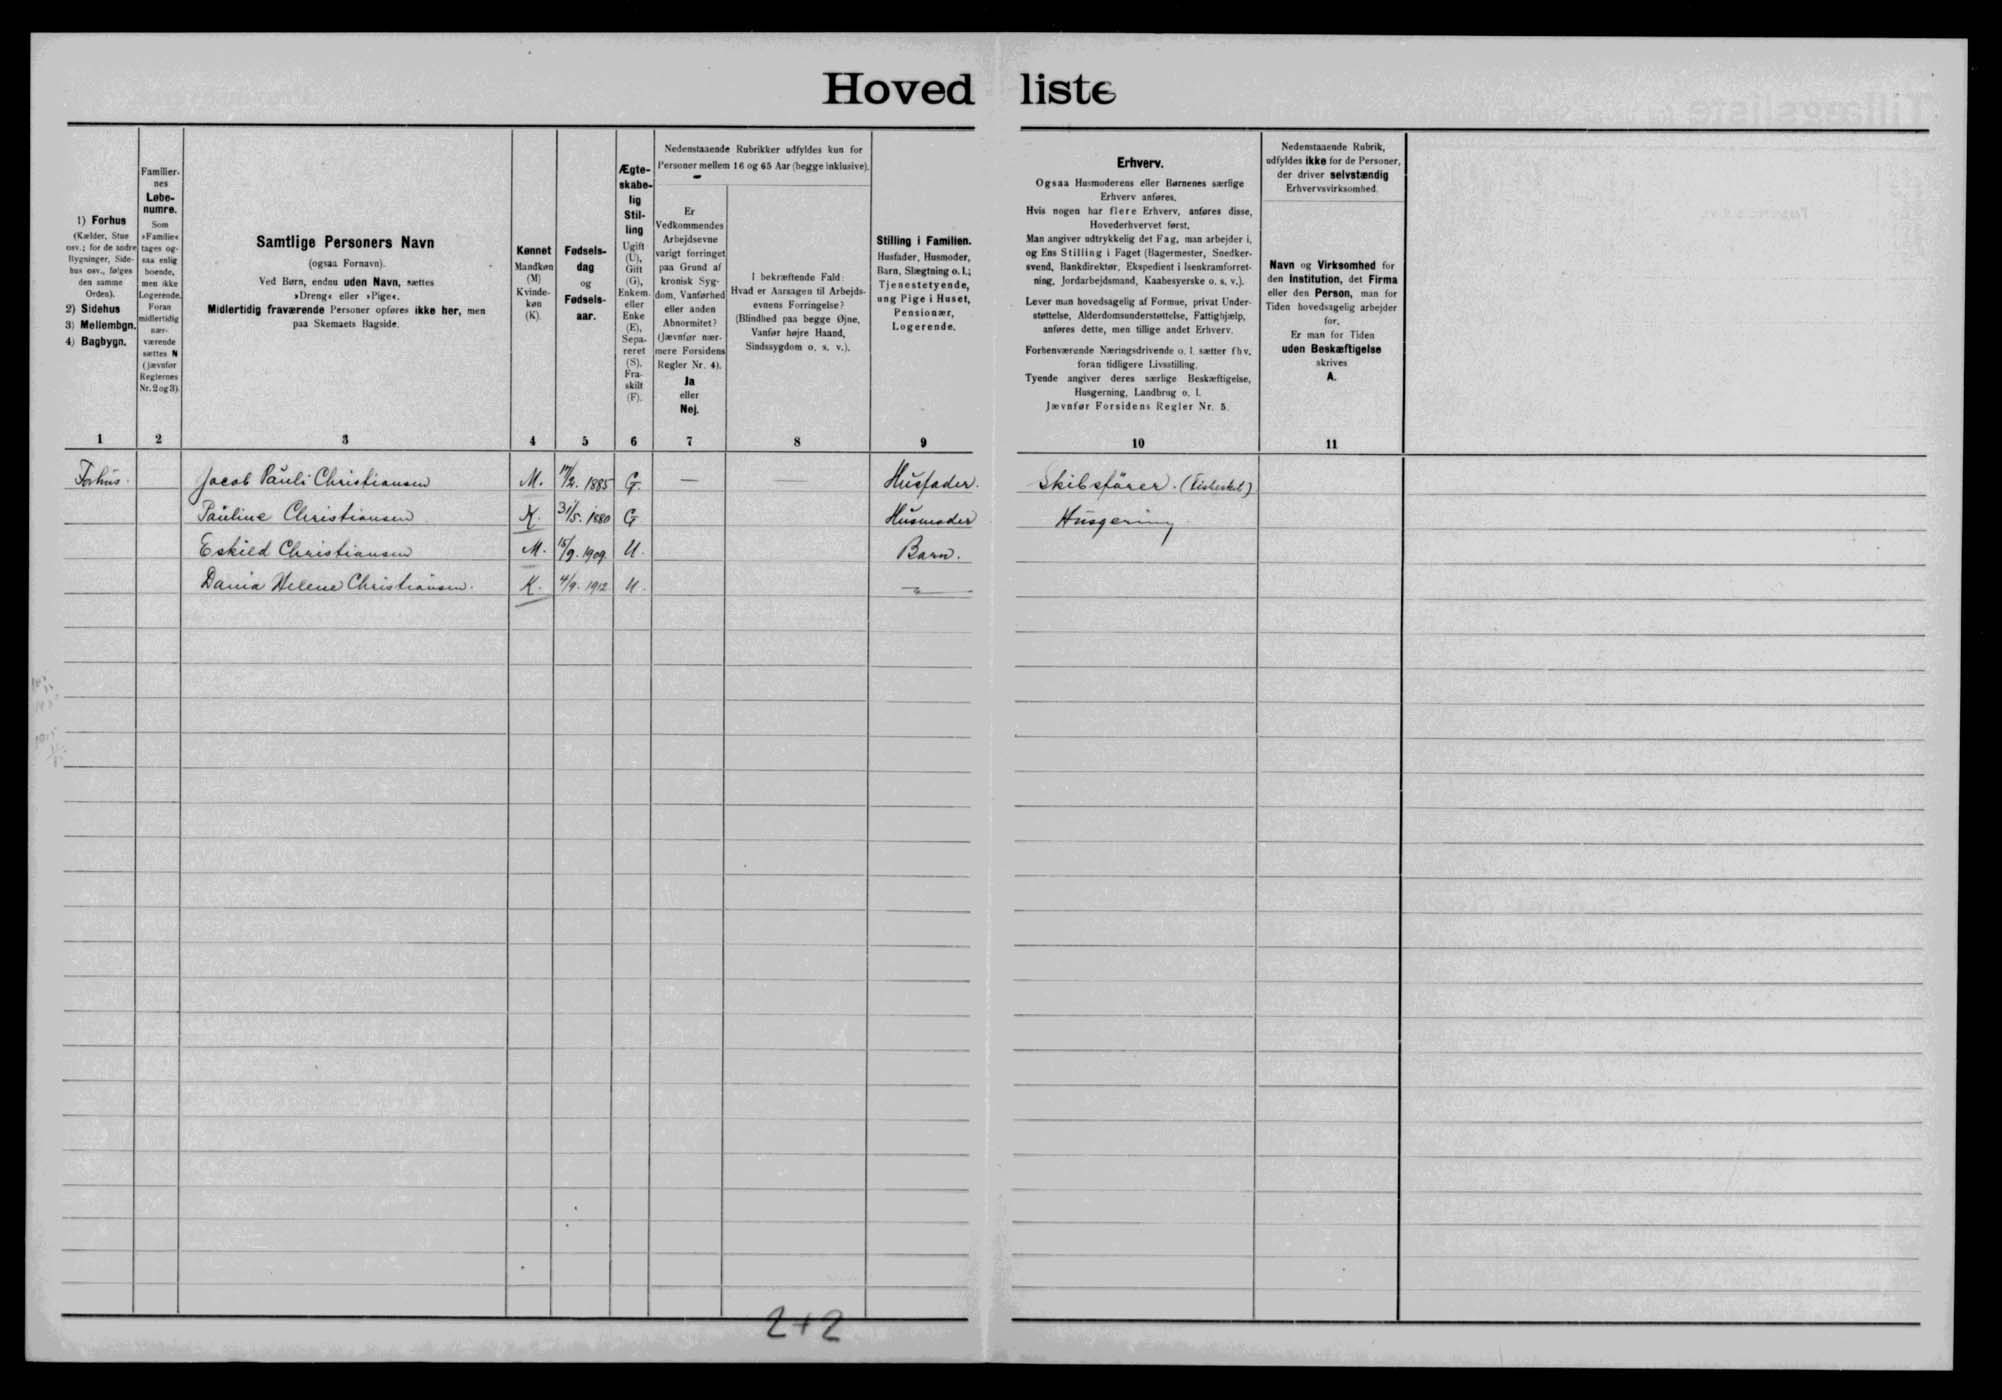 Hovedliste
1) Forhus
(Kælder, Stue
osv.; for de andre
Bygninger, Side-
hus osv., følges
den samme
Orden).
2) Sidehus
3) Mellembgn.
4) Bagbygn.
Familier-
nes
Løbe-
numre.
Som
»Familie«
tages og-
saa enlig
boende,
men ikke
Logerende.
Foran
midlertidig
nær-
værende
sættes N
(jævnfør
Reglernes
Nr. 2 og 3).
Samtlige Personers Navn
(ogsaa Fornavn).
Ved Børn, endnu uden Navn, sættes
»Dreng« eller »Pige«.
Midlertidig fraværende Personer opføres ikke her, men
paa Skemaets Bagside.
Kønnet
Mandkøn
(M)
Kvinde-
køn
(K).
Fødsels-
dag
og
Fødsels-
aar.
Ægte-
skabe-
lig
Stil-
ling
Ugift
(U),
Gift
(G),
Enkem.
eller
Enke
(E),
Sepa-
reret
(S),
Fra-
skilt
(F).
Nedenstaaende Rubrikker udfyldes kun for
Personer mellem 16 og 65 Aar (begge inklusive).
Er
Vedkommendes
Arbejdsevne
varigt forringet
paa Grund af
kronisk Syg-
dom, Vanførhed
eller anden
Abnormitet?
(Jævnfør nær-
mere Forsidens
Regler Nr. 4).
Ja
eller
Nej.
I bekræftende Fald:
Hvad er Aarsagen til Arbejds-
evnens Forringelse?
(Blindhed paa begge Øjne,
Vanfør højre Haand,
Sindssygdom o. s. v.).
Stilling i Familien.
Husfader, Husmoder,
Barn, Slægtning o. l.;
Tjenestetyende,
ung Pige i Huset,
Pensionær,
Logerende.
Erhverv.
Ogsaa Husmoderens eller Børnenes særlige
Erhverv anføres.
Hvis nogen har flere Erhverv, anføres disse,
Hovederhvervet først.
Man angiver udtrykkelig det Fag, man arbejder i,
og Ens Stilling i Faget (Bagermester, Snedker-
svend, Bankdirektør, Ekspedient i Isenkramforret-
ning, Jordarbejdsmand, Kaabesyerske o. s. v.).
Lever man hovedsagelig af Formue, privat Under-
støttelse, Alderdomsunderstøttelse, Fattighjælp,
anføres dette, men tillige andet Erhverv.
Forhenværende Næringsdrivende o. l. sætter fhv.
foran tidligere Livsstilling.
Tyende angiver deres særlige Beskæftigelse,
Husgerning, Landbrug o. l.
Jævnfør Forsidens Regler Nr. 5.
Nedenstaaende Rubrik,
udfyldes ikke for de Personer,
der driver selvstændig
Erhvervsvirksomhed.
Navn og Virksomhed for
den Institution, det Firma
eller den Person, man for
Tiden hovedsagelig arbejder
for.
Er man for Tiden
uden Beskæftigelse
skrives
A.
1 2 3 4 5 6 7 8 9 10 11
Forhus. Jacob Pauli Christiansen M. 17/2. 1885 G. — — Husfader. Skibsfører.
Pauline Christiansen K. 31/5. 1880 G Husmoder Husgerning
Eskild Christiansen M. 15/9. 1909 U. Barn.
Dania Helene Christiansen. K. 4/9. 1912 U. —"—
2+2